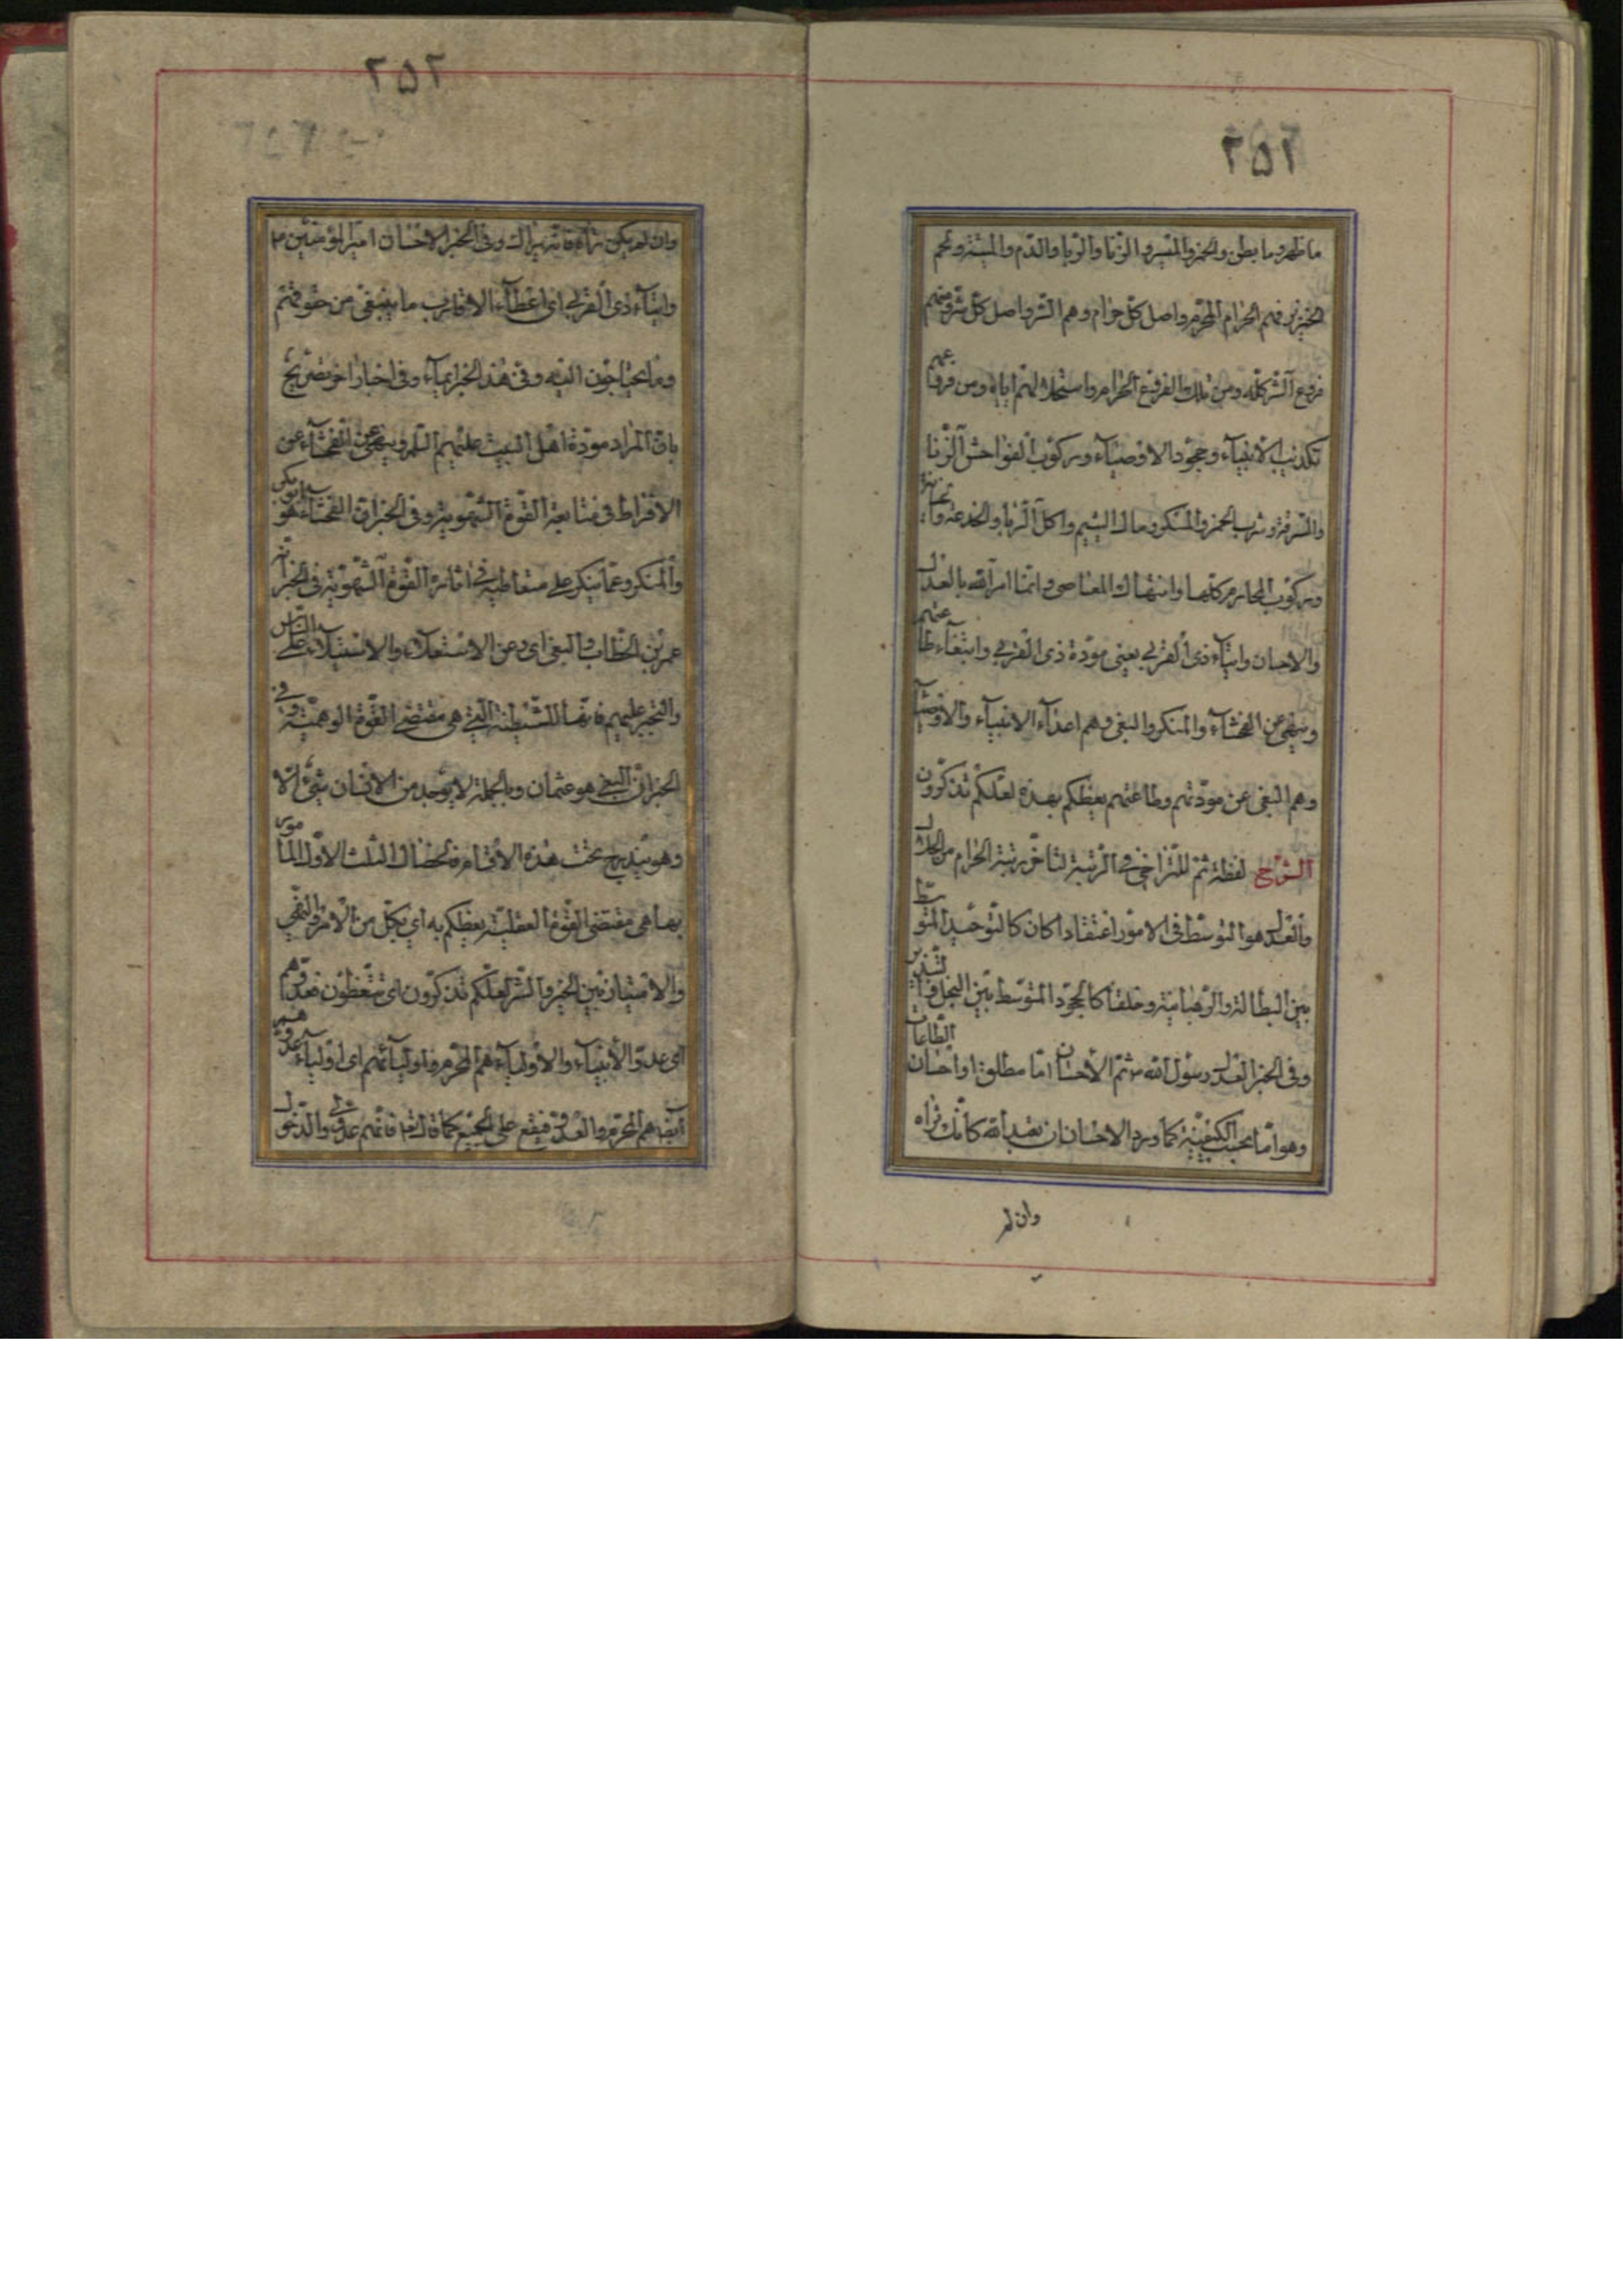 ٢٥٢
ما ظهر وما بطن والخمر والميسر والزنا والربا والدّم والميتة ولحم
الخنزير فهم الحرام المحرّم واصل كلّ حرام وهم الشر واصل كلّ شرّ ومنهم
فروع الشر كلّه ومن تلك الفروع الحرام واستحلالهم اياه ومن فروعهم
تكذيب الانبياء وجحود الاوصياء وركوب الفواحش الزّنا
والسّرقة وشرب الخمر والمنكر ومال اليتيم واكل الرّبا والخدعة والخيانة
وركوب المحارم كلّها وانتهاك المعاصى وانما امر الله بالعدل
والاحسان وايتاء ذى القربى يعنى مودّة ذى القربى وابتغاء طاعتهم
وينهى عن الفحشاء والمنكر والبغى وهم اعداء الانبياء والاوصياء
وهم البغى عن مودّتهم وطاعتهم يعظكم بهذه لعلّكم تذكّرون
الشرح لفظة ثمّ للتّراخى فى الرّتبة لتاخّر رتبة الحرام من الحلال
والعدل هو التوسّط فى الامور اعتقادا كان كالتّوحيد المتوسّط
بين البطالة والرّهبانية وخلقا كالجود المتوسّط بين البخل والتّبذير
وفى الخبر العدل رسول الله ص ثمّ الاحسان امّا مطلق او احسان الطّاعات
وهو امّا بحسب الكيفيّة كما ورد الاحسان ان تعبد الله كانّك تراه
وان لم
٢٥٢
وان لم يكن تراه فانه يراك وفى الخبر الاحسان امير المؤمنين ع
وايتاء ذى القربى اى اعطاء الاقارب ما ينبغى من حقوقهم
وما يحتاجون اليه وفى هذا الخبر ايماء وفى اخبار اخر تصريح
بانّ المراد مودّة اهل البيت عليهم السلم وينهى عن الفحشاء عن
الافراط فى متابعة القوّة الشّهويّة وفى الخبر انّ الفحشاء هو ابو بكر
والمنكر وعمّا ينكر على متعاطيه فى اثارة القوّة الشّهويّة فى الخبر انّه
عمر بن الخطّاب والبغى اى وعن الاستعلاء والاستيلاء على النّاس
والتجبر عليهم فانها الشّيطنة الّتى هى مقتضى القوّة الوهميّة وفى
الخبر انّ البغى هو عثمان وبالجملة لا يوجد من الانسان شىء الّا
وهو يندرج تحت هذه الاقسام فالخصال الثلث الاول المامور
بها هى مقتضى القوّة العقليّة يعظكم به اى بكل من الامر والنّهى
والامتياز بين الخير والشّر لعلّكم تذكّرون اى تتّعظون فعدوّهم
اى عدوّ الأنبياء والأولياء هم المحرّم واوليائهم اى اولياء عدوّهم
ايضا هم المحرّم والعدوّ يقع على الجميع كما قال تعالى فانّهم عدوّ لى والدّخول